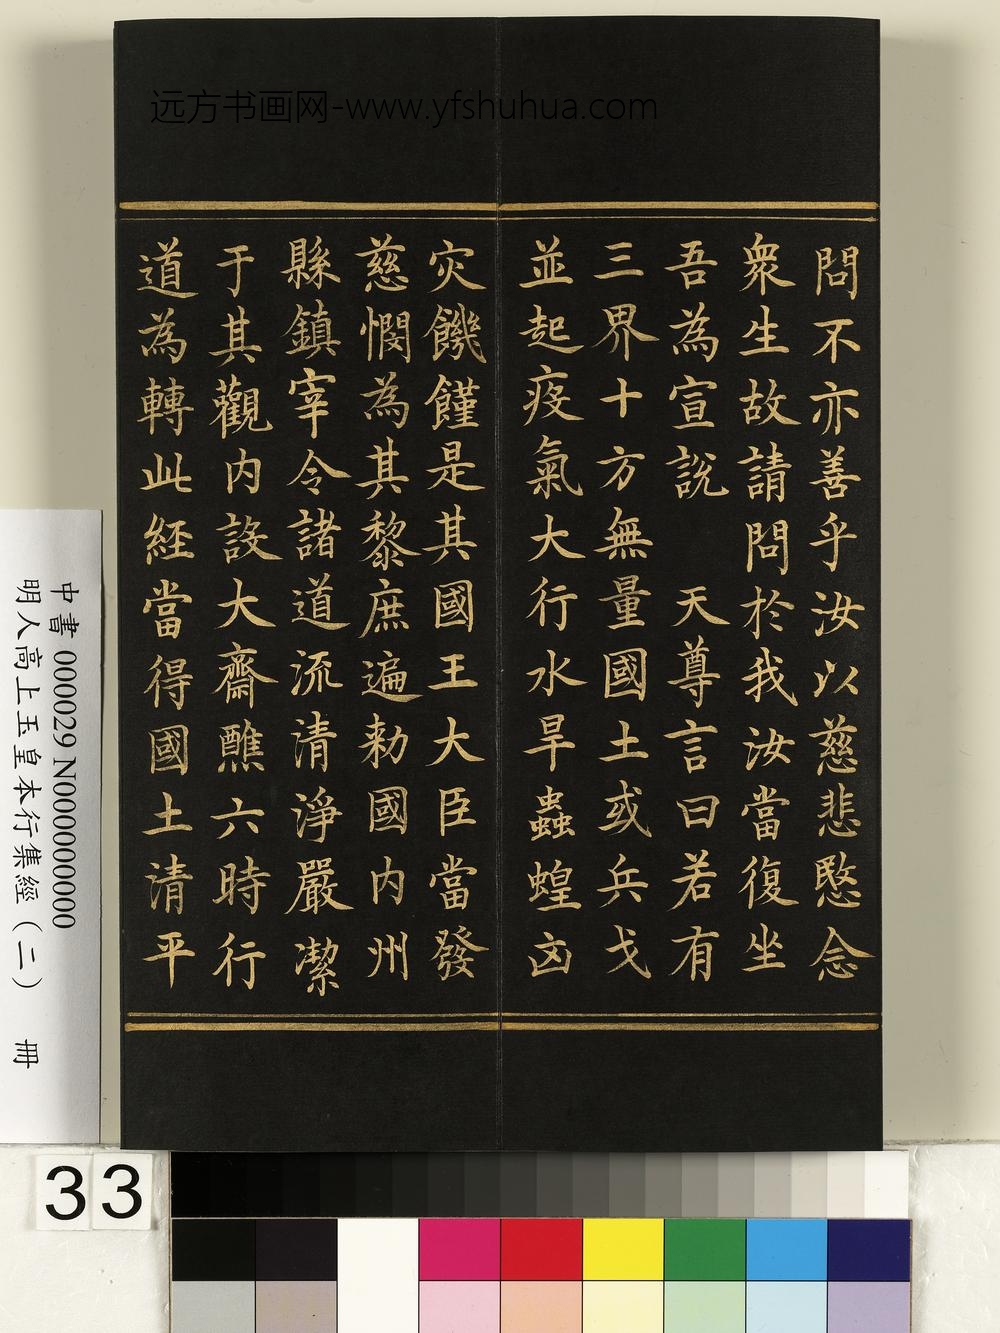 远方书画网-www.yfshuhua.com
問不亦善乎汝以慈悲愍念
衆生故請問於我汝當復坐
吾為宣說　天尊言曰若有
三界十方無量國土或兵戈
並起疫氣大行水旱蟲蝗凶
灾饑饉是其國王大臣當發
慈憫為其黎庶遍勑國内州
縣鎮宰令諸道流清淨嚴潔
于其觀内設大齋醮六時行
道為轉此經當得國土清平
中書 000029 N000000000
明人高上玉皇本行集經（二）　冊
33